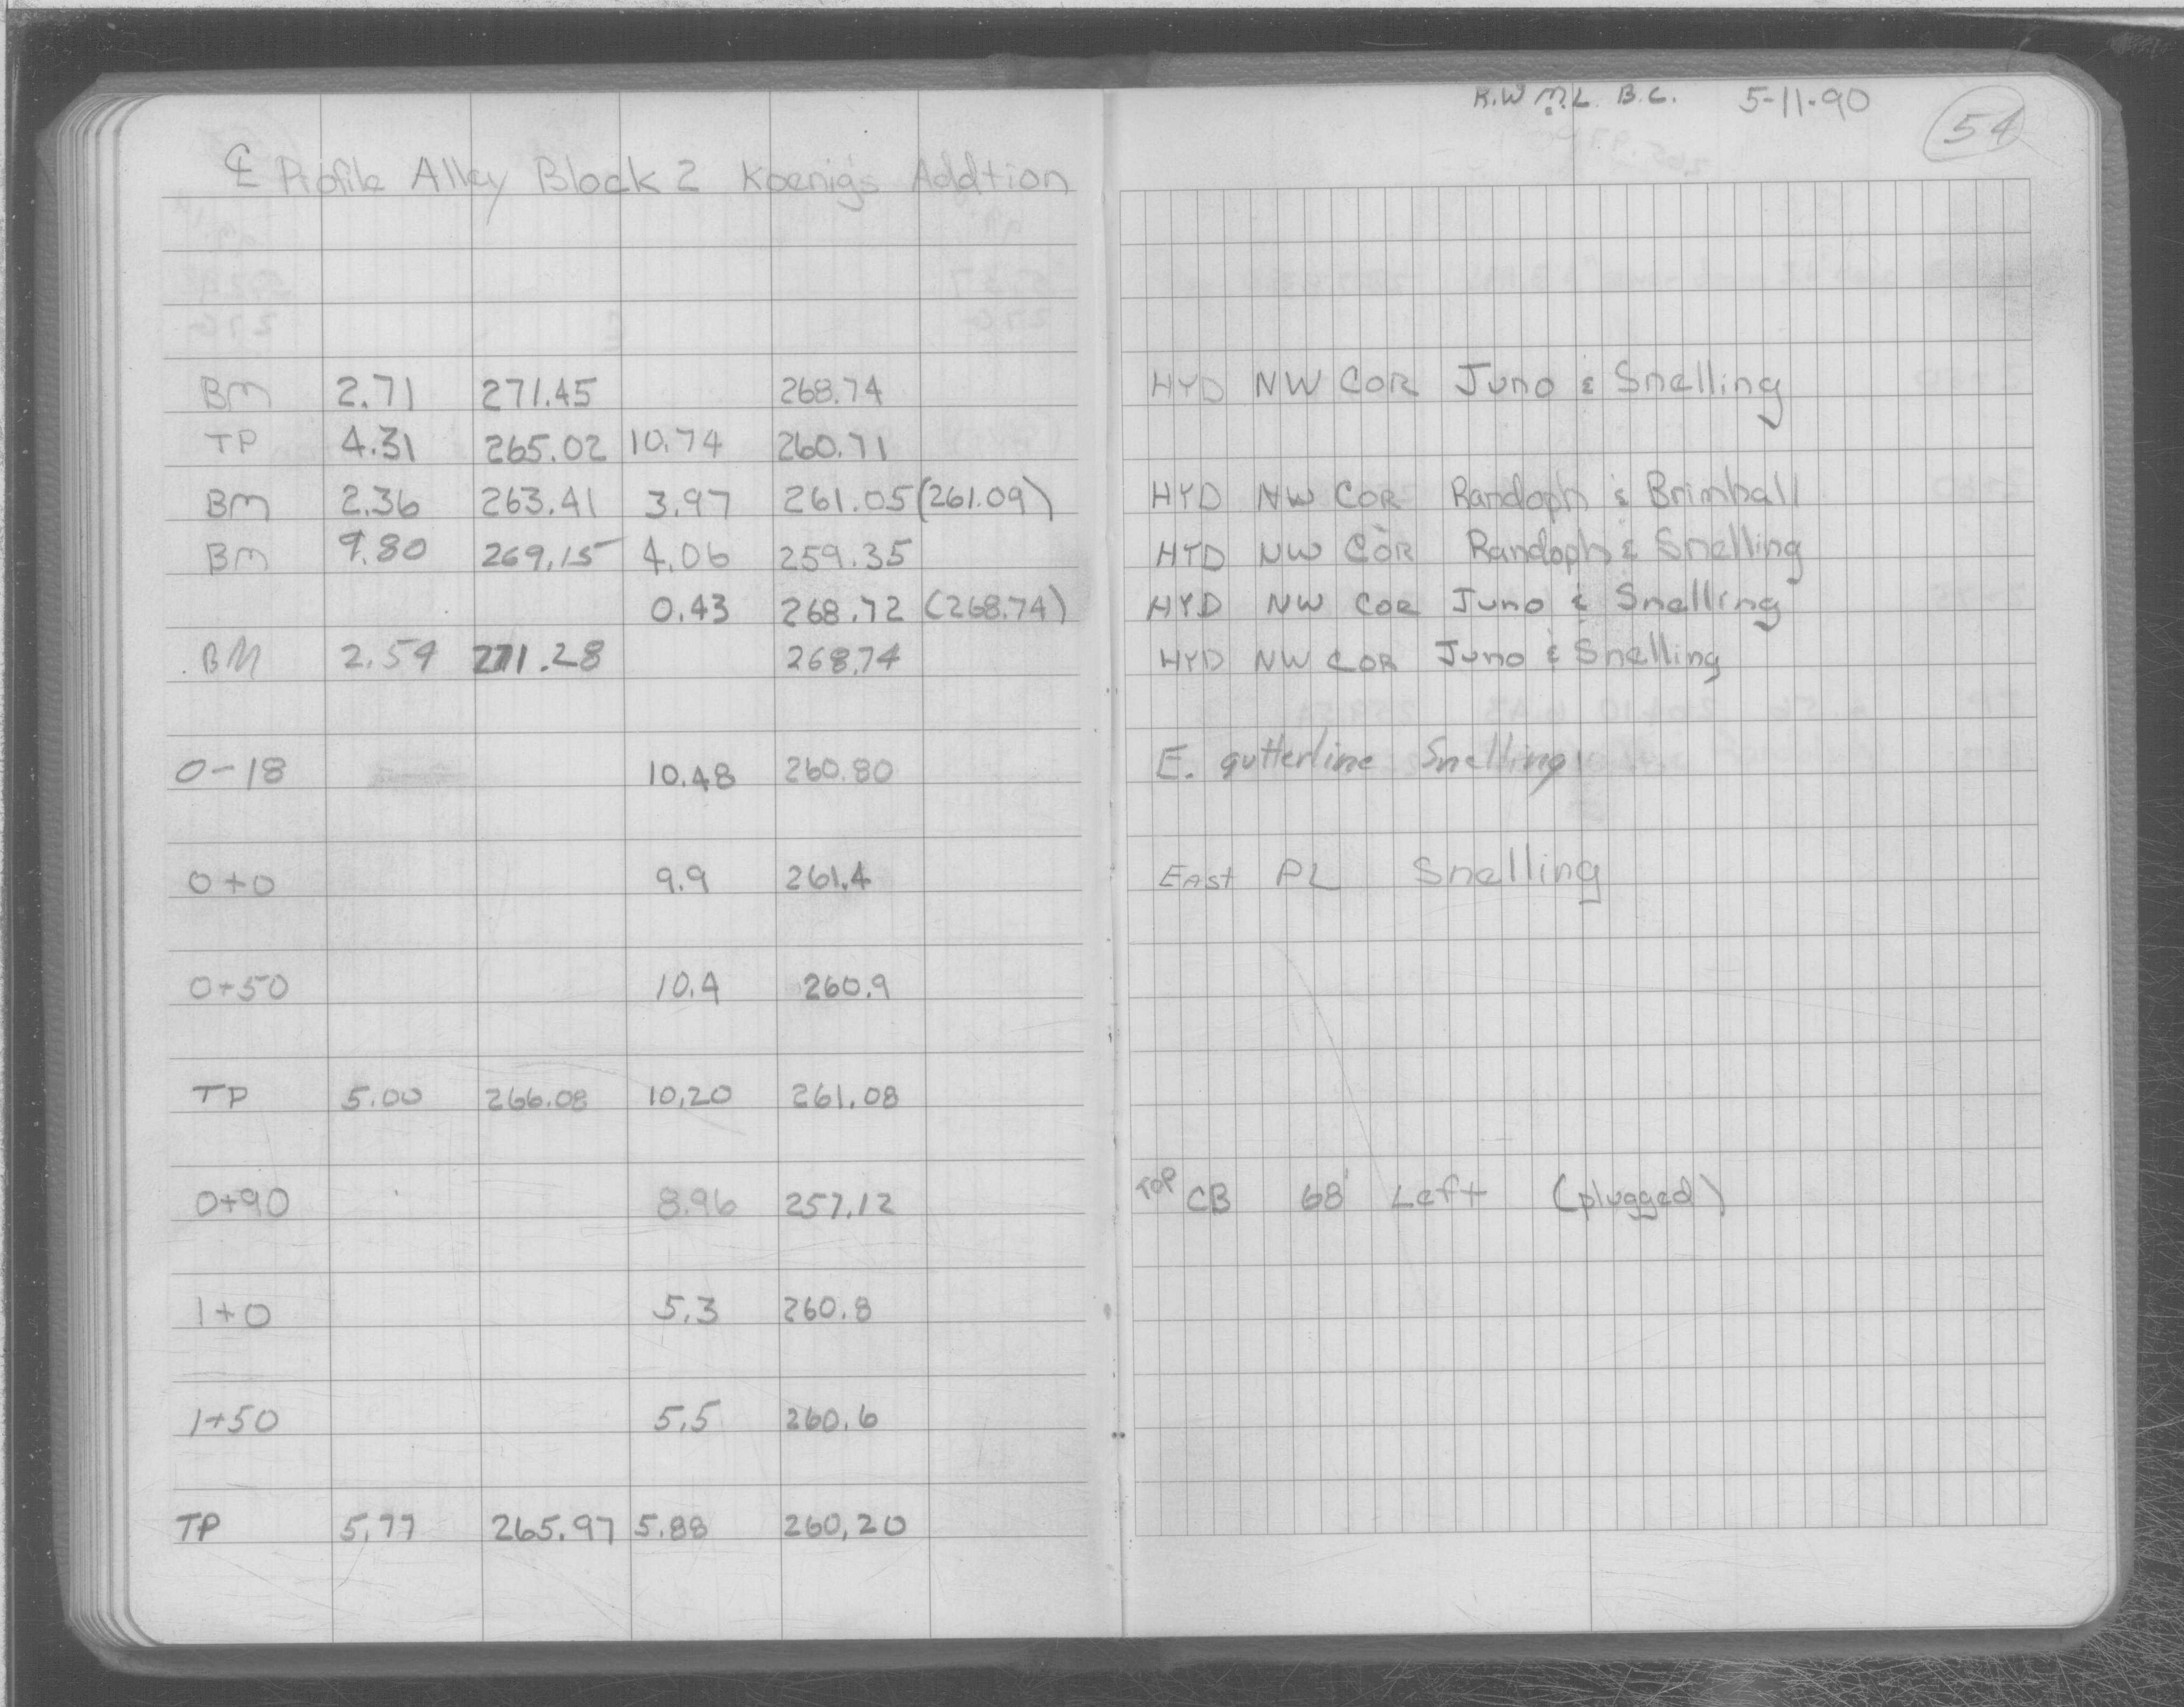 R.W M.L. B.C. 5-11-90
54
℄ Profile Alley Block 2 Koenig's Addtion
BM 2.71 271.45 268.74 HYD NW COR Juno & Snelling
TP 4.31 265.02 10.74 260.71
BM 2.36 263.41 3.97 261.05 (261.09) HYD NW COR Randoph & Brimhall
BM 9.80 269.15 4.06 259.35 HYD NW COR Randoph & Snelling
0.43 268.72 (268.74) HYD NW COR Juno & Snelling
BM 2.54 271.28 268.74 HYD NW COR Juno & Snelling
0-18 10.48 260.80 E. gutterline Snelling
0+0 9.9 261.4 East PL Snelling
0+50 10.4 260.9
TP 5.00 266.08 10.20 261.08
0+90 8.96 257.12 TOP CB 68' Left (plugged)
1+0 5.3 260.8
1+50 5.5 260.6
TP 5.77 265.97 5.88 260.20